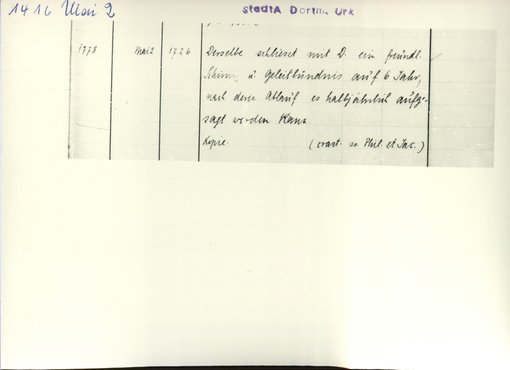 1416 Mai 2
StadtA Dortm. Urk
1778 Mai 2 1726 Derselbe schliesst mit D. ein freundl.
Schirm u Geleitbündnis auf 6 Jahr,
nach deren Ablauf es halbjährlich aufge-
sagt werden kann.
Kopie. (crast. ss. Phil. et Jac.)